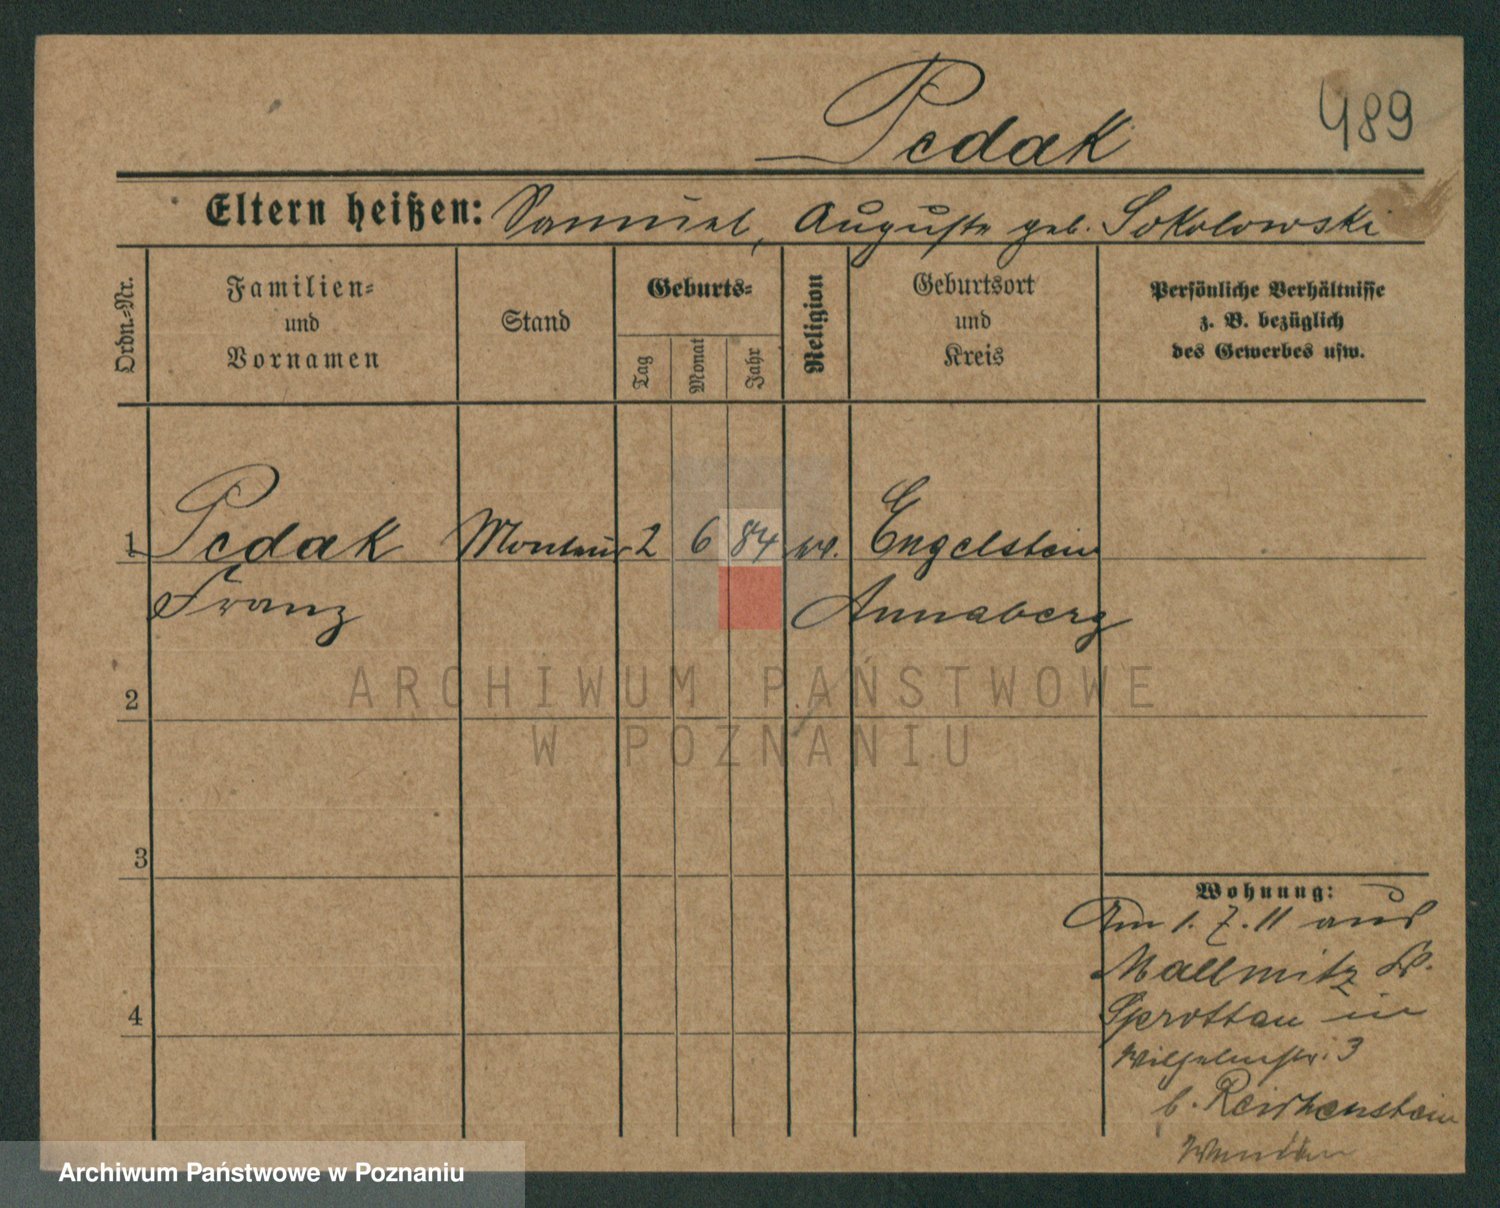 Pedak
489
Eltern heißen: Samuel, Auguste geb. Sokolowski
Ordn.-Nr.
Familien-
und
Vornamen
Stand
Geburts-
Tag
Monat
Jahr
Religion
Geburtsort
und
Kreis
Persönliche Verhältnisse
z. B. bezüglich
des Gewerbes usw.
1 Pedak Monteur 2 6 84 ev. Engelstein
Franz Annaberg
ARCHIWUM PAŃSTWOWE
W POZNANIU
2
3
4
Wohnung:
Am 1.7.11 aus
Mallmitz Kr.
Sprottau in
Wilhelmstr. 3
b. Reichenstein
Archiwum Państwowe w Poznaniu